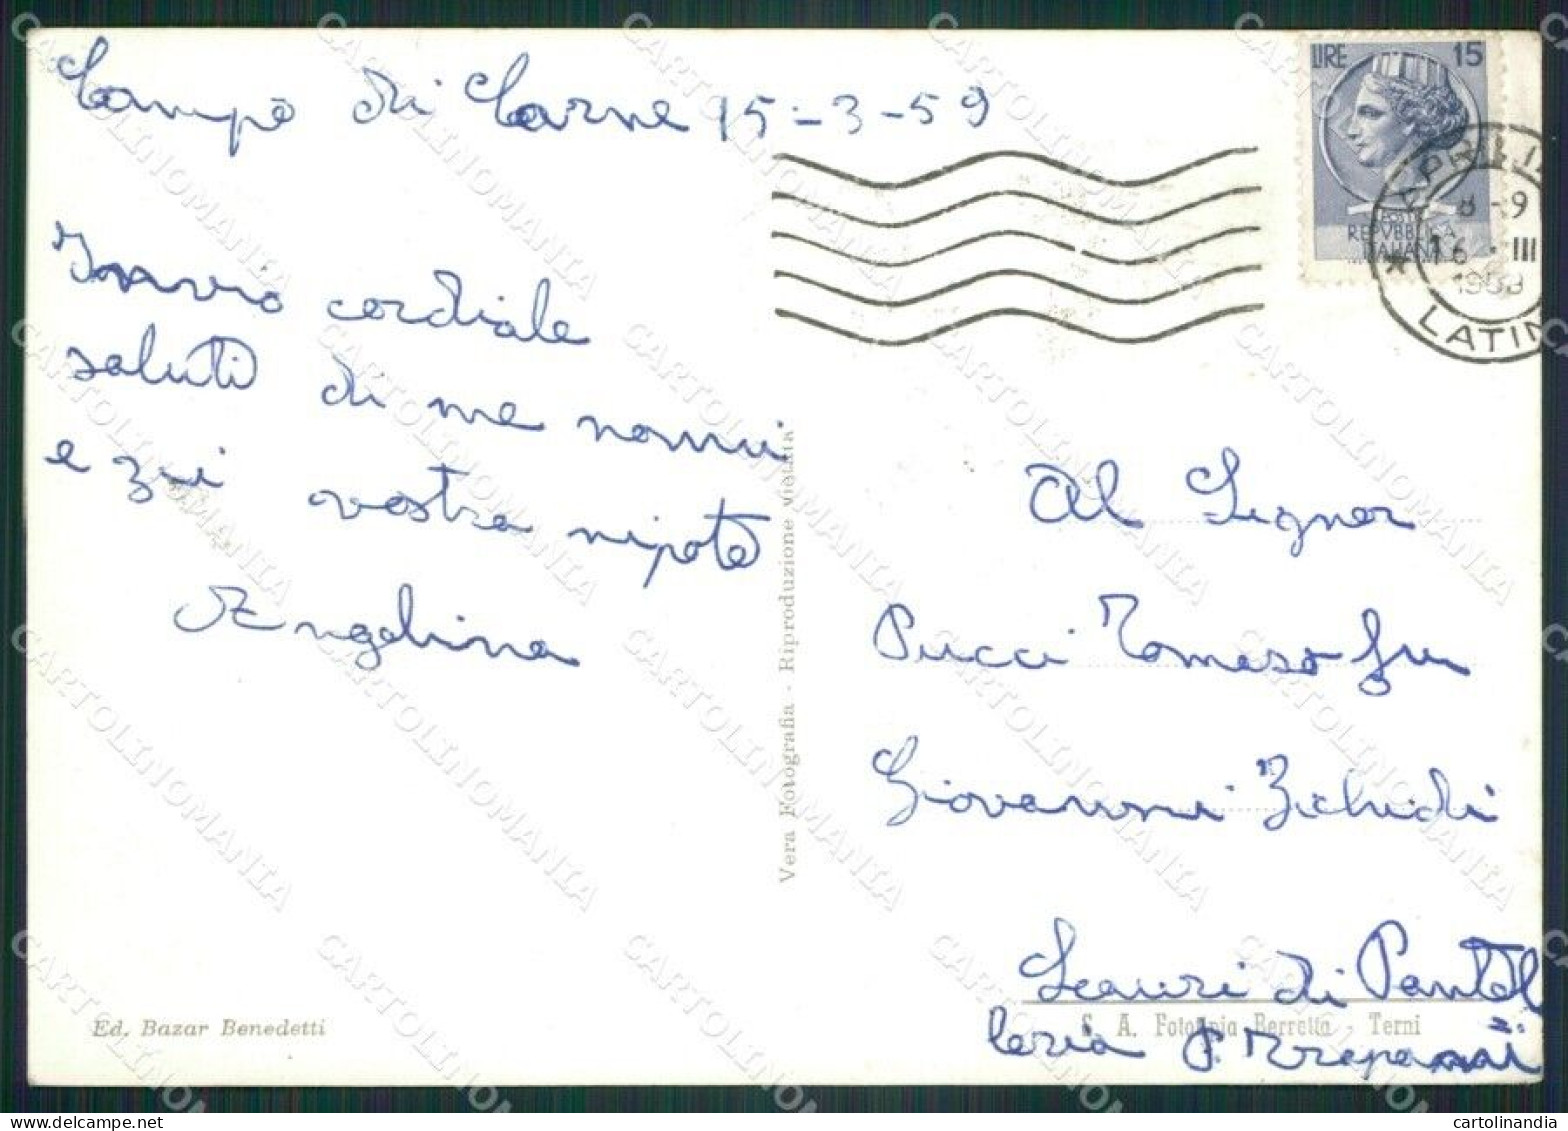 Campo di Carne 15-3-59
Invio cordiale
saluti di me nonni
e zii vostra nipote
Angelina
LIRE 15
POSTE
REPVBBLICA
ITALIANA
APRILIA
8-9
16 III
1959
LATIN
Vera Fotografia - Riproduzione vietata
Al Signor
Pucci Tomaso fu
Giovanni
Scauri di Pantel
leria P. Trapani
Ed. Bazar Benedetti
S. A. Fototipia Berretta - Terni
CARTOLINOMANIA
cartolinandia